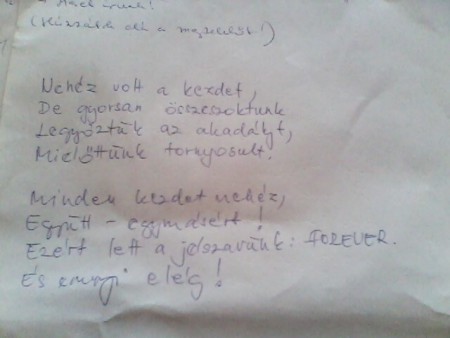 (Húzzátok alá a megfelelőt!)
Nehéz volt a kezdet,
De gyorsan összeszoktunk
Legyőztük az akadályt,
Mi előttünk tornyosult.
Minden kezdet nehéz,
Együtt - egymásért!
Ezért lett a jelszavunk: FOREVER.
És ennyi elég!